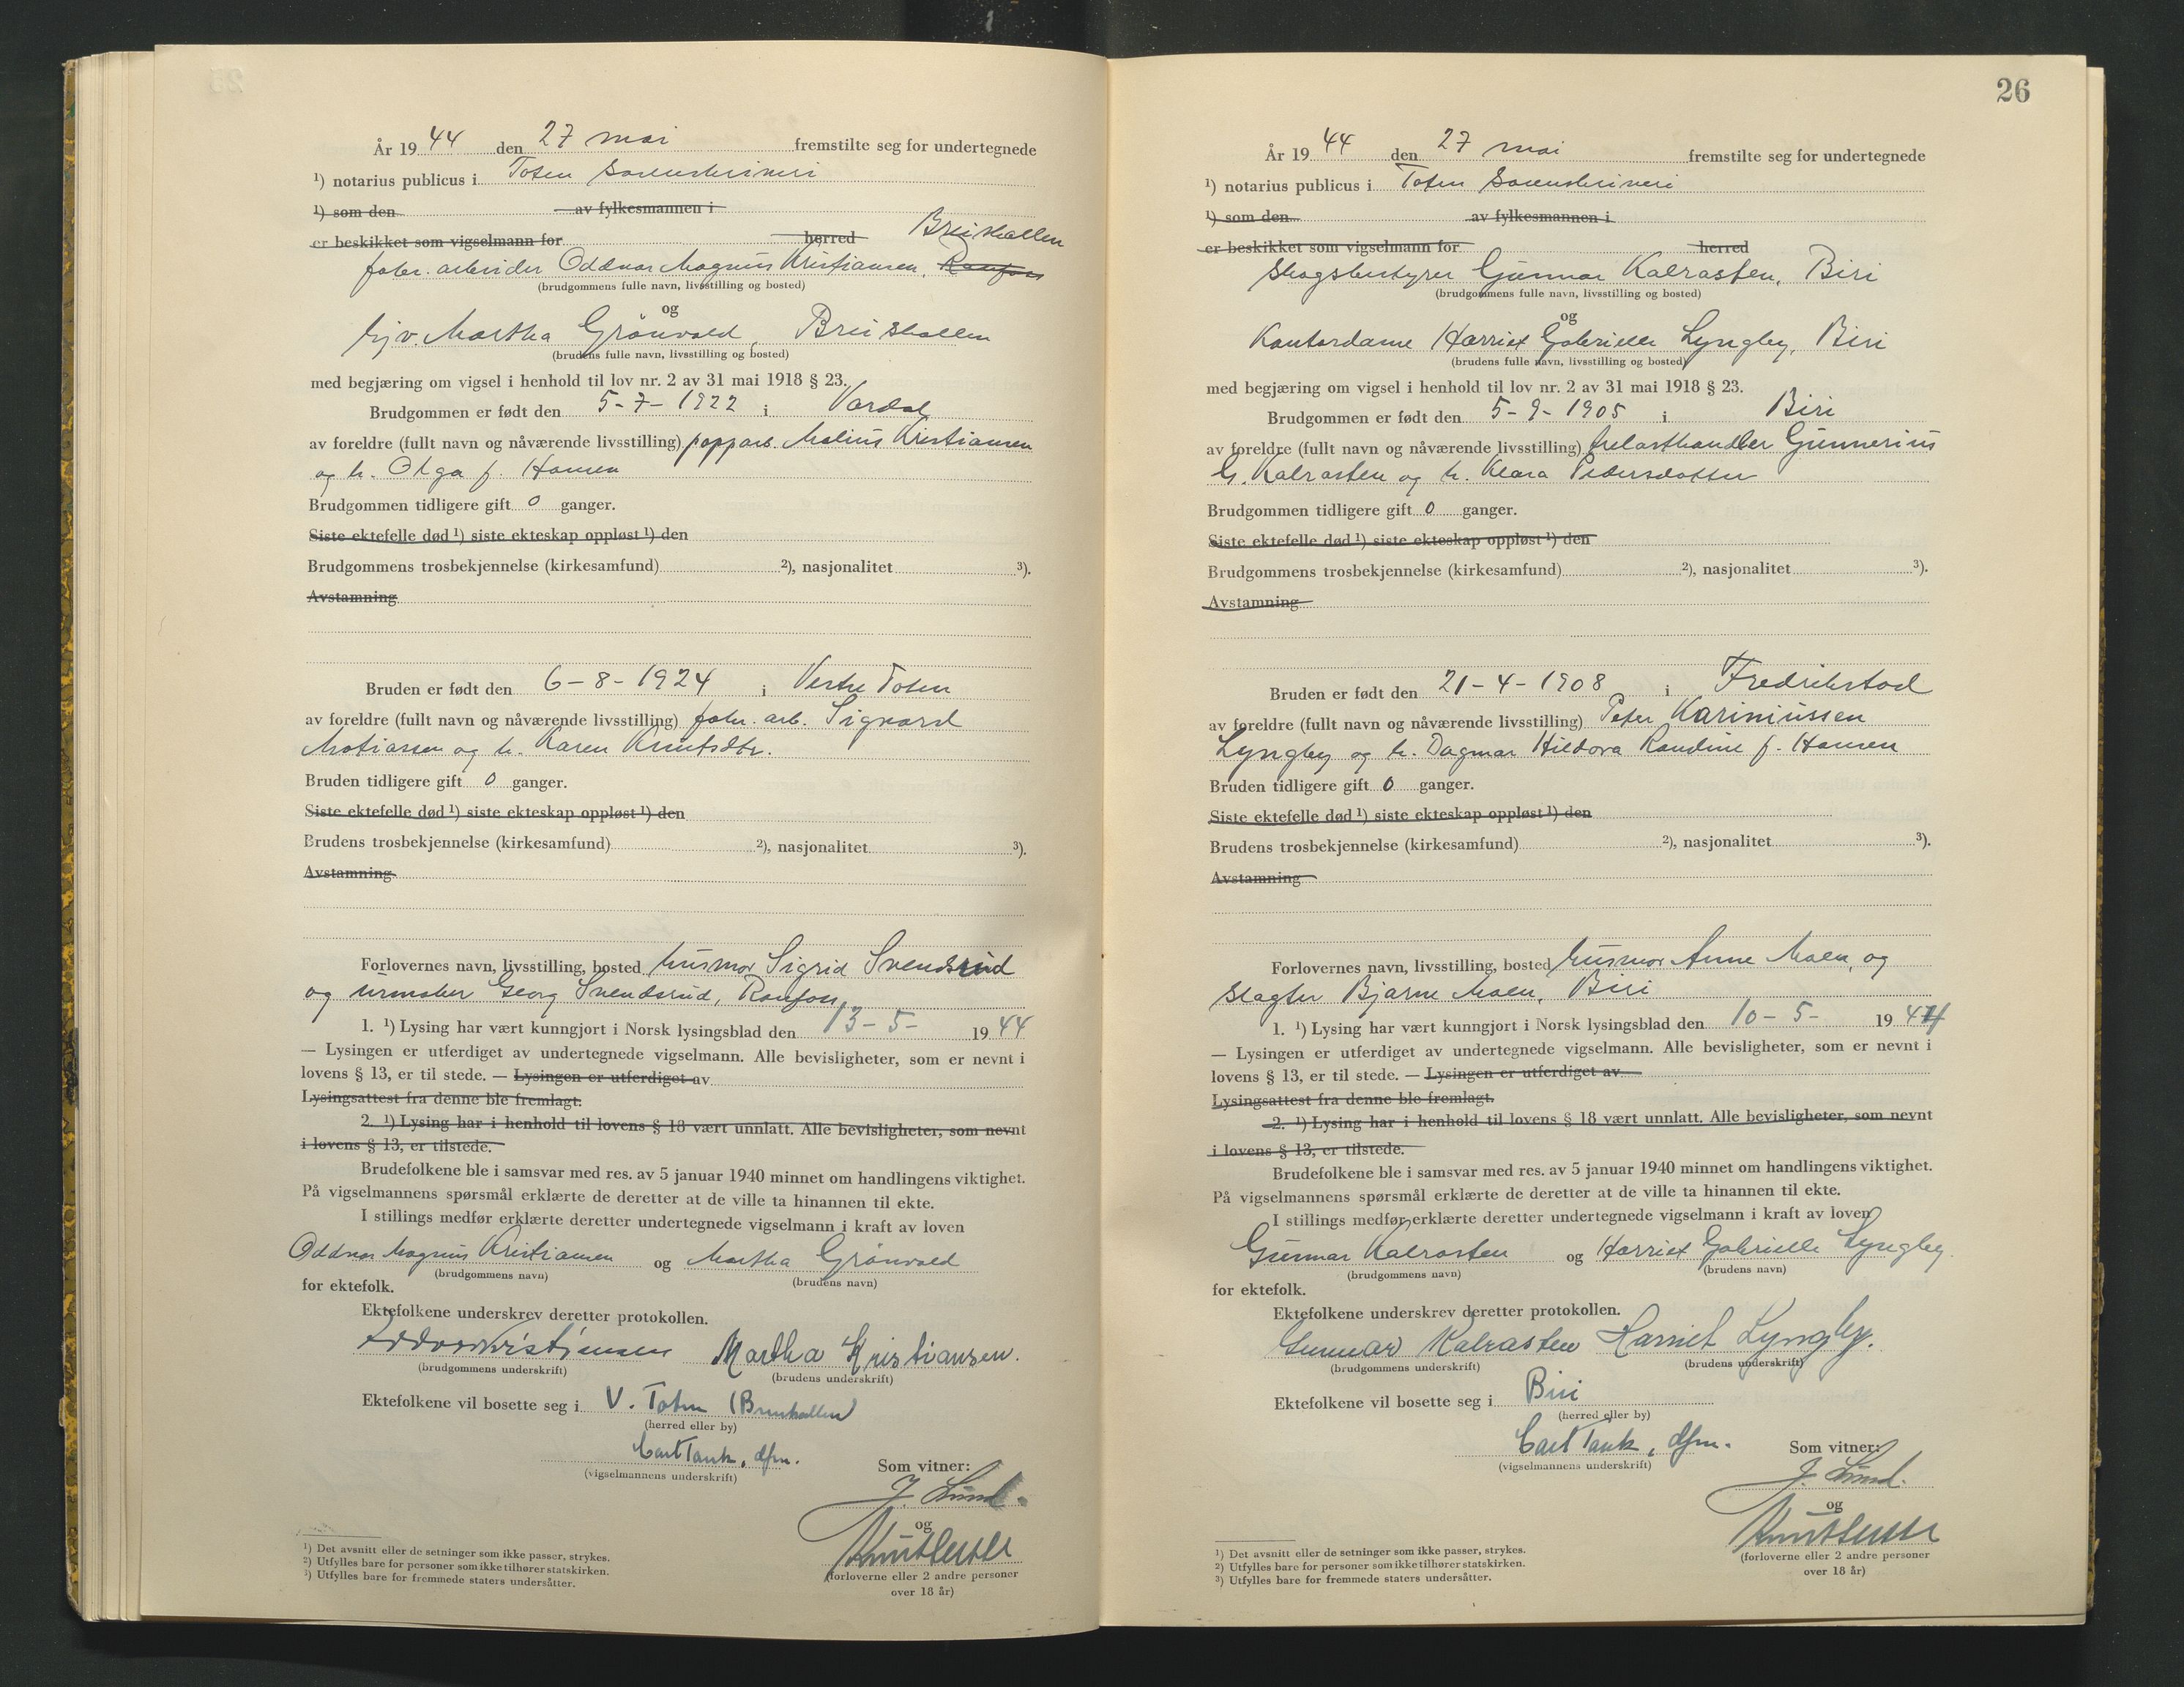 År 1944 den 27 mai fremstilte seg for undertegnede
¹) notarius publicus i Toten sorenskriveri
¹) som den av fylkesmannen i
er beskikket som vigselmann for herred Breiskallen
fabr. arbeider Oddvar Magnus Kristiansen, Raufoss
(brudgommens fulle navn, livsstilling og bosted)
og
hjv. Martha Grönvold, Breiskallen
(brudens fulle navn, livsstilling og bosted)
med begjæring om vigsel i henhold til lov nr. 2 av 31 mai 1918 § 23.
Brudgommen er født den 5-7-1922 i Vardal
av foreldre (fullt navn og nåværende livsstilling) papparb. Malius Kristiansen
og h. Olga f. Hansen
Brudgommen tidligere gift 0 ganger.
Siste ektefelle død ¹) siste ekteskap oppløst ¹) den
Brudgommens trosbekjennelse (kirkesamfund) ²), nasjonalitet ³).
Avstamning
Bruden er født den 6-8-1924 i Vestre Toten
av foreldre (fullt navn og nåværende livsstilling) fabr. arb. Sigvard
Matiassen og h. Karen Knutsdtr.
Bruden tidligere gift 0 ganger.
Siste ektefelle død ¹) siste ekteskap oppløst ¹) den
Brudens trosbekjennelse (kirkesamfund) ²), nasjonalitet ³).
Avstamning
Forlovernes navn, livsstilling, bosted husmor Sigrid Svendsrud
og urmaker Georg Svendsrud, Raufoss,
1. ¹) Lysing har vært kunngjort i Norsk lysingsblad den 13-5- 1944
— Lysingen er utferdiget av undertegnede vigselmann. Alle bevisligheter, som er nevnt i
lovens § 13, er til stede. — Lysingen er utferdiget av
Lysingsattest fra denne ble fremlagt.
2. ¹) Lysing har i henhold til lovens § 18 vært unnlatt. Alle bevisligheter, som nevnt
i lovens § 13, er tilstede.
Brudefolkene ble i samsvar med res. av 5 januar 1940 minnet om handlingens viktighet.
På vigselmannens spørsmål erklærte de deretter at de ville ta hinannen til ekte.
I stillings medfør erklærte deretter undertegnede vigselmann i kraft av loven
Oddvar Magnus Kristiansen og Martha Grönvold
(brudgommens navn) (brudens navn)
for ektefolk.
Ektefolkene underskrev deretter protokollen.
Oddvar Kristiansen Martha Kristiansen.
(brudgommens underskrift) (brudens underskrift)
Ektefolkene vil bosette seg i V. Toten (Breiskallen)
(herred eller by)
Carl Tank, dfm.
(vigselmannens underskrift)
Som vitner:
J. Lund.
og
(forloverne eller 2 andre personer
over 18 år)
¹) Det avsnitt eller de setninger som ikke passer, strykes.
²) Utfylles bare for personer som ikke tilhører statskirken.
³) Utfylles bare for fremmede staters undersåtter.
26
År 1944 den 27 mai fremstilte seg for undertegnede
¹) notarius publicus i Toten sorenskriveri
¹) som den av fylkesmannen i
er beskikket som vigselmann for herred
skogsbestyrer Gunnar Kalrasten, Biri
(brudgommens fulle navn, livsstilling og bosted)
og
Kontordame Harriet Gabrielle Lyngby, Biri
(brudens fulle navn, livsstilling og bosted)
med begjæring om vigsel i henhold til lov nr. 2 av 31 mai 1918 § 23.
Brudgommen er født den 5-9-1905 i Biri
av foreldre (fullt navn og nåværende livsstilling) trelasthandler Gunnerius
G. Kalrasten og h. Klara Pedersdatter
Brudgommen tidligere gift 0 ganger.
Siste ektefelle død ¹) siste ekteskap oppløst ¹) den
Brudgommens trosbekjennelse (kirkesamfund) ²), nasjonalitet ³).
Avstamning
Bruden er født den 21-4-1908 i Fredrikstad
av foreldre (fullt navn og nåværende livsstilling) Peter Kariniussen
Lyngby og h. Dagmar Hildora Randine f. Hansen
Bruden tidligere gift 0 ganger.
Siste ektefelle død ¹) siste ekteskap oppløst ¹) den
Brudens trosbekjennelse (kirkesamfund) ²), nasjonalitet ³).
Avstamning
Forlovernes navn, livsstilling, bosted husmor Anne Moen, og
slagter Bjarne Moen, Biri
1. ¹) Lysing har vært kunngjort i Norsk lysingsblad den 10-5- 1944
— Lysingen er utferdiget av undertegnede vigselmann. Alle bevisligheter, som er nevnt i
lovens § 13, er til stede. — Lysingen er utferdiget av
Lysingsattest fra denne ble fremlagt.
2. ¹) Lysing har i henhold til lovens § 18 vært unnlatt. Alle bevisligheter, som nevnt
i lovens § 13, er tilstede.
Brudefolkene ble i samsvar med res. av 5 januar 1940 minnet om handlingens viktighet.
På vigselmannens spørsmål erklærte de deretter at de ville ta hinannen til ekte.
I stillings medfør erklærte deretter undertegnede vigselmann i kraft av loven
Gunnar Kalrasten og Harriet Gabrielle Lyngby
(brudgommens navn) (brudens navn)
for ektefolk.
Ektefolkene underskrev deretter protokollen.
Gunnar Kalrasten Harriet Lyngby.
(brudgommens underskrift) (brudens underskrift)
Ektefolkene vil bosette seg i Biri
(herred eller by)
Carl Tank, dfm.
(vigselmannens underskrift)
Som vitner:
J. Lund.
og
(forloverne eller 2 andre personer
over 18 år)
¹) Det avsnitt eller de setninger som ikke passer, strykes.
²) Utfylles bare for personer som ikke tilhører statskirken.
³) Utfylles bare for fremmede staters undersåtter.